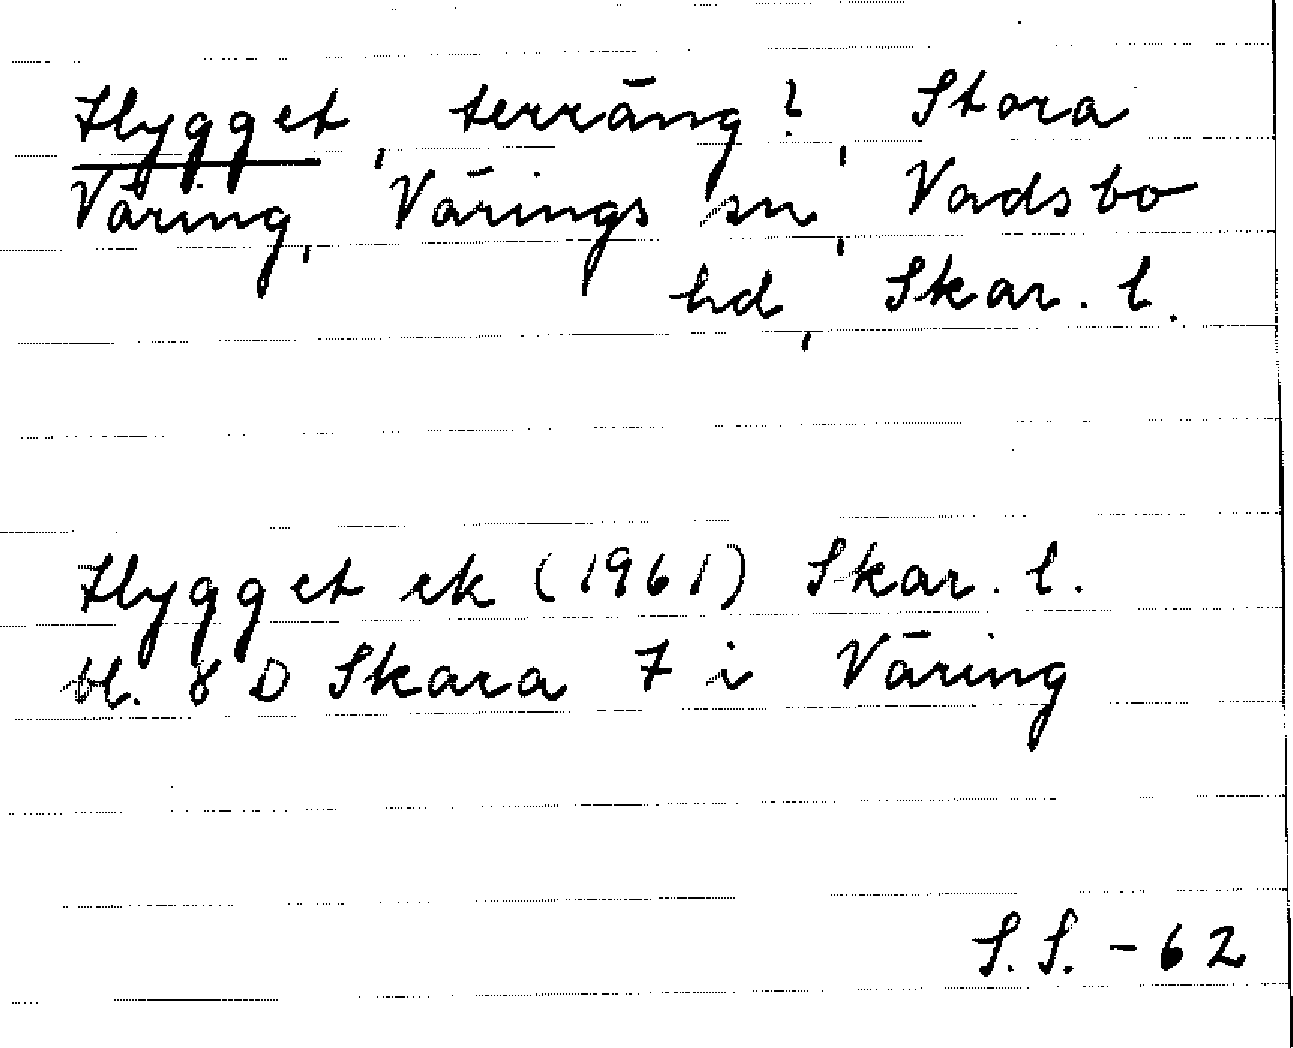 Hygget, terräng?, Stora
Väring, Värings sn, Vadsbo
hd, Skar. l.
Hygget ek (1961) Skar. l.
bl. 8 D Skara 7 i Väring
S.S. -62